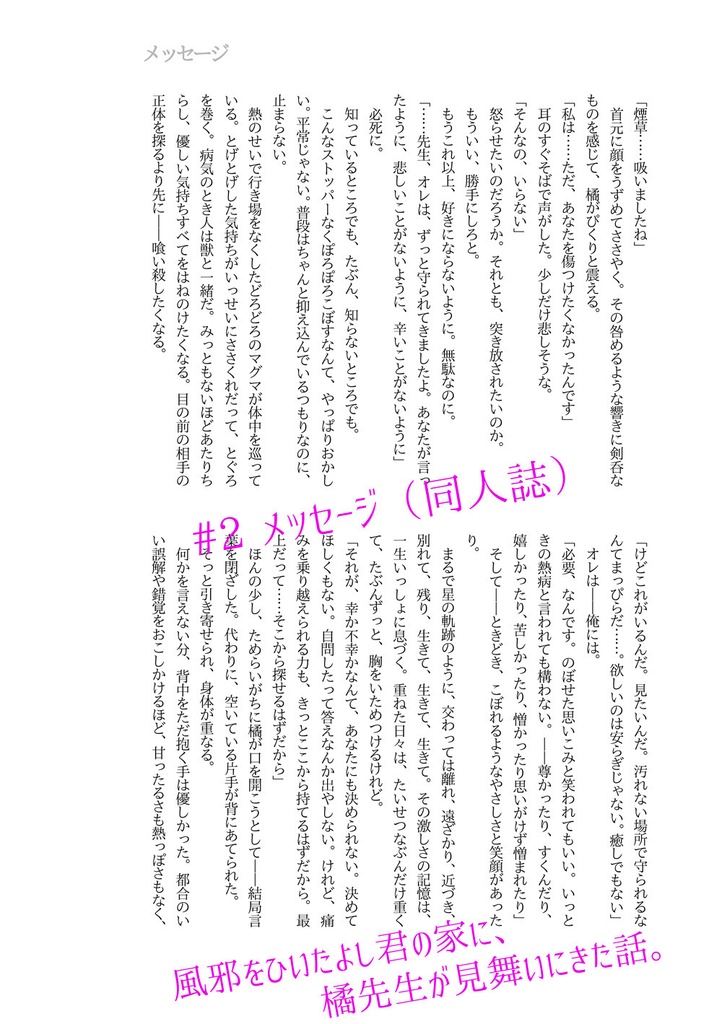 メッセージ
「煙草……吸いましたね」
首元に顔をうずめてささやく。その咎めるような響きに剣呑な
ものを感じて、橘がぴくりと震える。
「私は……ただ、あなたを傷つけたくなかったんです」
耳のすぐそばで声がした。少しだけ悲しそうな。
「そんなの、いらない」
怒らせたいのだろうか。それとも、突き放されたいのか。
もういい、勝手にしろと。
もうこれ以上、好きにならないように。無駄なのに。
「……先生、オレは、ずっと守られてきましたよ。あなたが言っ
たように、悲しいことがないように、辛いことがないように」
必死に。
知っているところでも、たぶん、知らないところでも。
こんなストッパーなくぼろぼろこぼすなんて、やっぱりおかし
い。平常じゃない。普段はちゃんと抑え込んでいるつもりなのに、
止まらない。
熱のせいで行き場をなくしたどろどろのマグマが体中を巡って
いる。とげとげした気持ちがいっせいにささくれだって、とぐろ
を巻く。病気のとき人は獣と一緒だ。みっともないほどあたりち
らし、優しい気持ちすべてをはねのけたくなる。目の前の相手の
正体を探るより先に――喰い殺したくなる。
「けどこれがいるんだ。見たいんだ。汚れない場所で守られるな
んてまっぴらだ……。欲しいのは安らぎじゃない。癒しでもない」
オレは――俺には。
「必要、なんです。のぼせた思いこみと笑われてもいい。いっと
きの熱病と言われても構わない。――尊かったり、すくんだり、
嬉しかったり、苦しかったり、憎かったり思いがけず憎まれたり」
そして――ときどき、こぼれるようなやさしさと笑顔があった
り。
まるで星の軌跡のように、交わっては離れ、遠ざかり、近づき、
別れて、残り、生きて、生きて、生きて。その激しさの記憶は、
一生いっしょに息づく。重ねた日々は、たいせつなぶんだけ重く
て、たぶんずっと、胸をいためつけるけれど。
「それが、幸か不幸かなんて、あなたにも決められない。決めて
ほしくもない。自問したって答えなんか出やしない。けれど、痛
みを乗り越えられる力も、きっとここから持てるはずだから。最
上だって……そこから探せるはずだから」
ほんの少し、ためらいがちに橘が口を開こうとして――結局言
葉を閉ざした。代わりに、空いている片手が背にあてられた。
そっと引き寄せられ、身体が重なる。
何かを言えない分、背中をただ抱く手は優しかった。都合のい
い誤解や錯覚をおこしかけるほど、甘ったるさも熱っぽさもなく、
#2 メッセージ（同人誌）
風邪をひいたよし君の家に、
橘先生が見舞いにきた話。